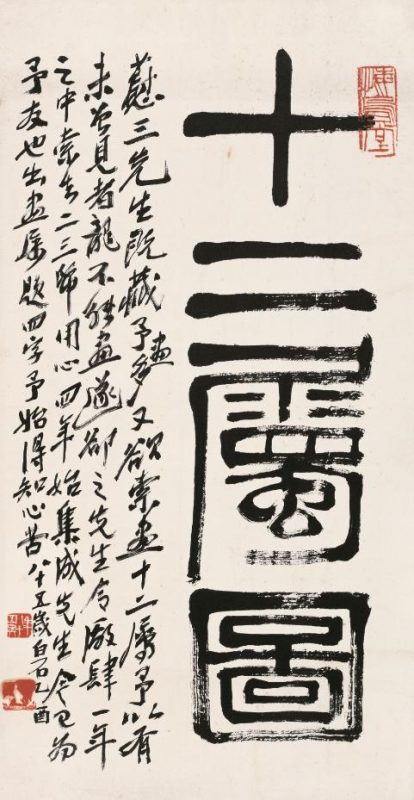 十二屬圖
三先生既藏予畫多又欲索畫十二屬予以有
未曾見者龍不能畫遂卻之先生令廠肆一年
之中索去二三幅用心四年始集成先生今已為
予友也出畫屬題四字予始得知心苦八十五歲白石乙酉